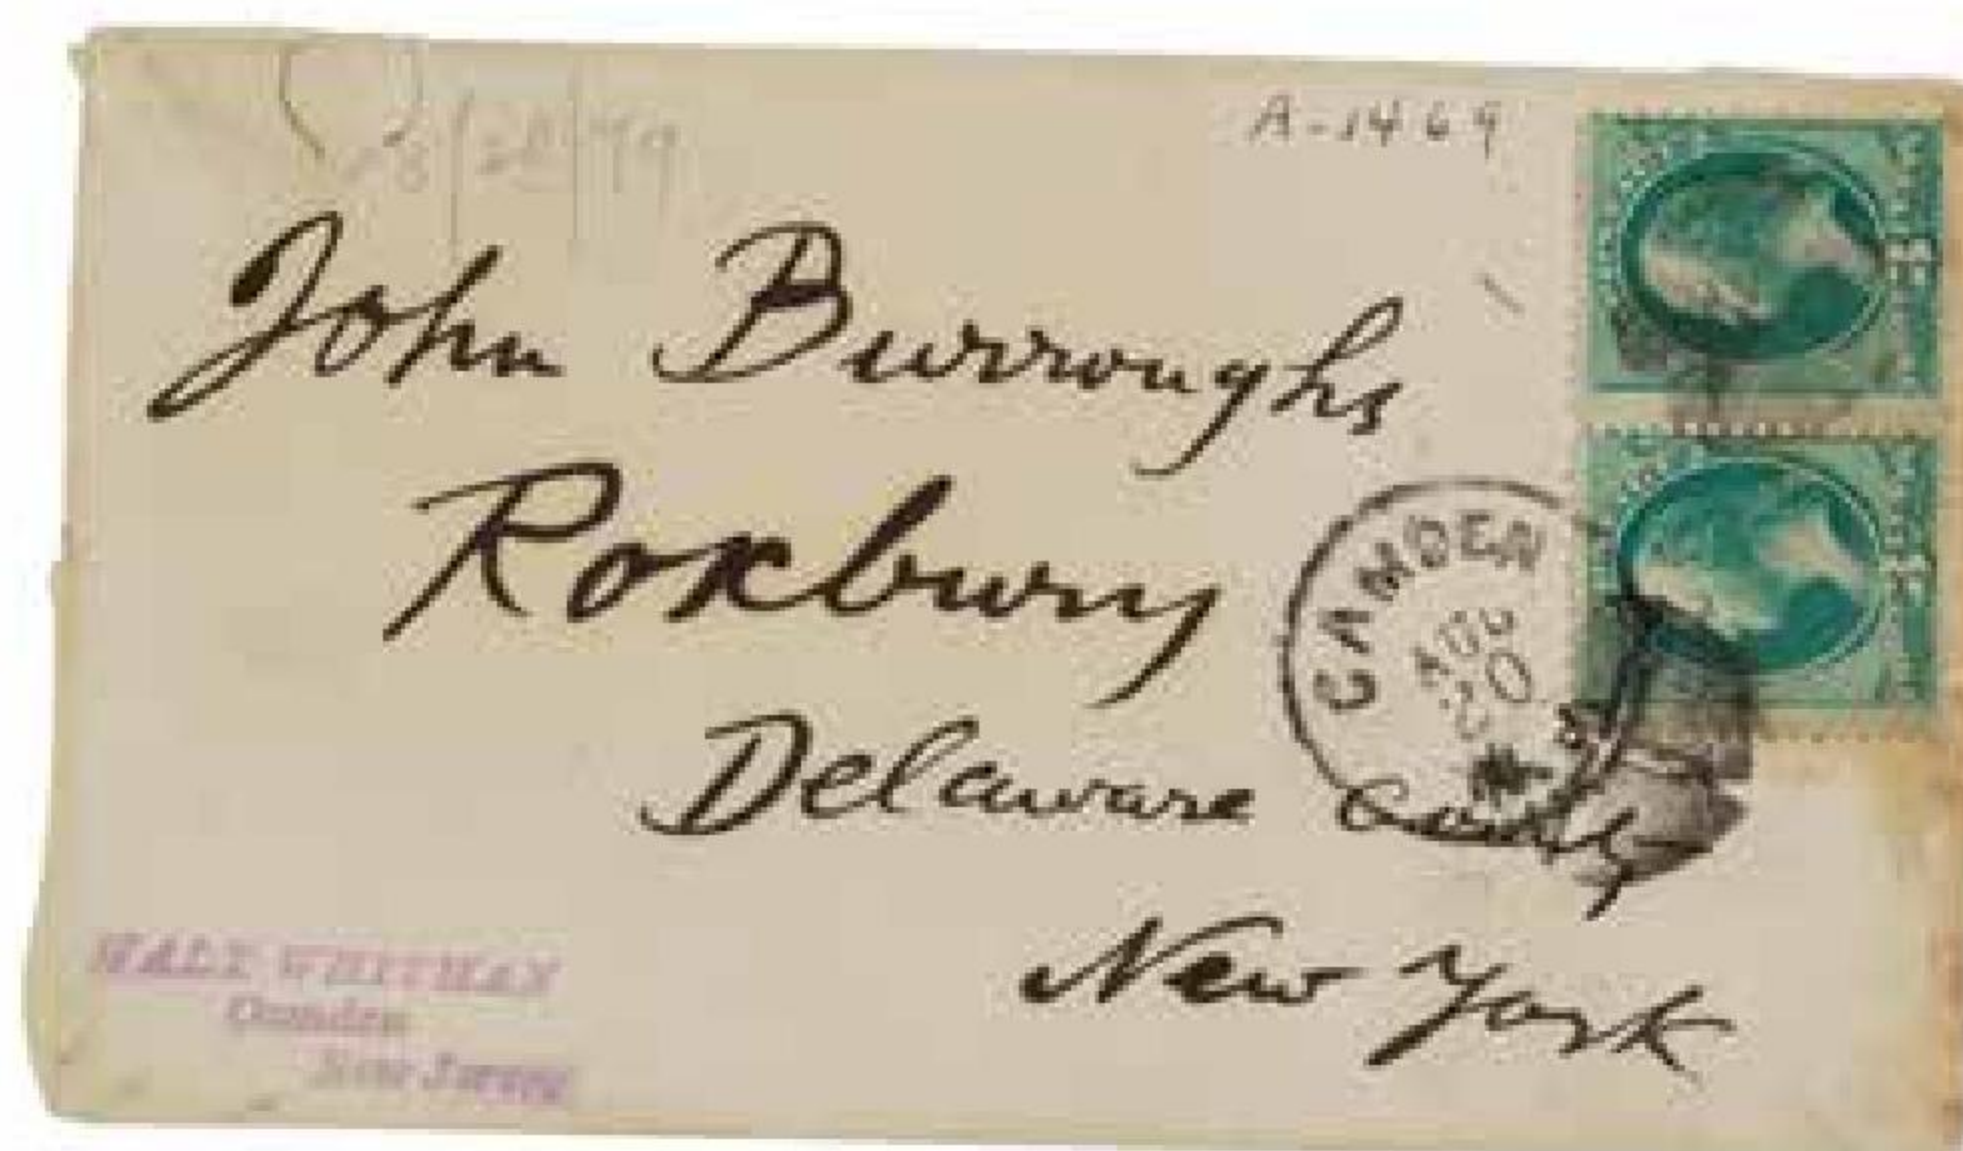 A-1469
John Burroughs
Roxbury
Delaware County
New York
CAMDEN
AUG
20
N.J.
WALT WHITMAN
Camden
New Jersey